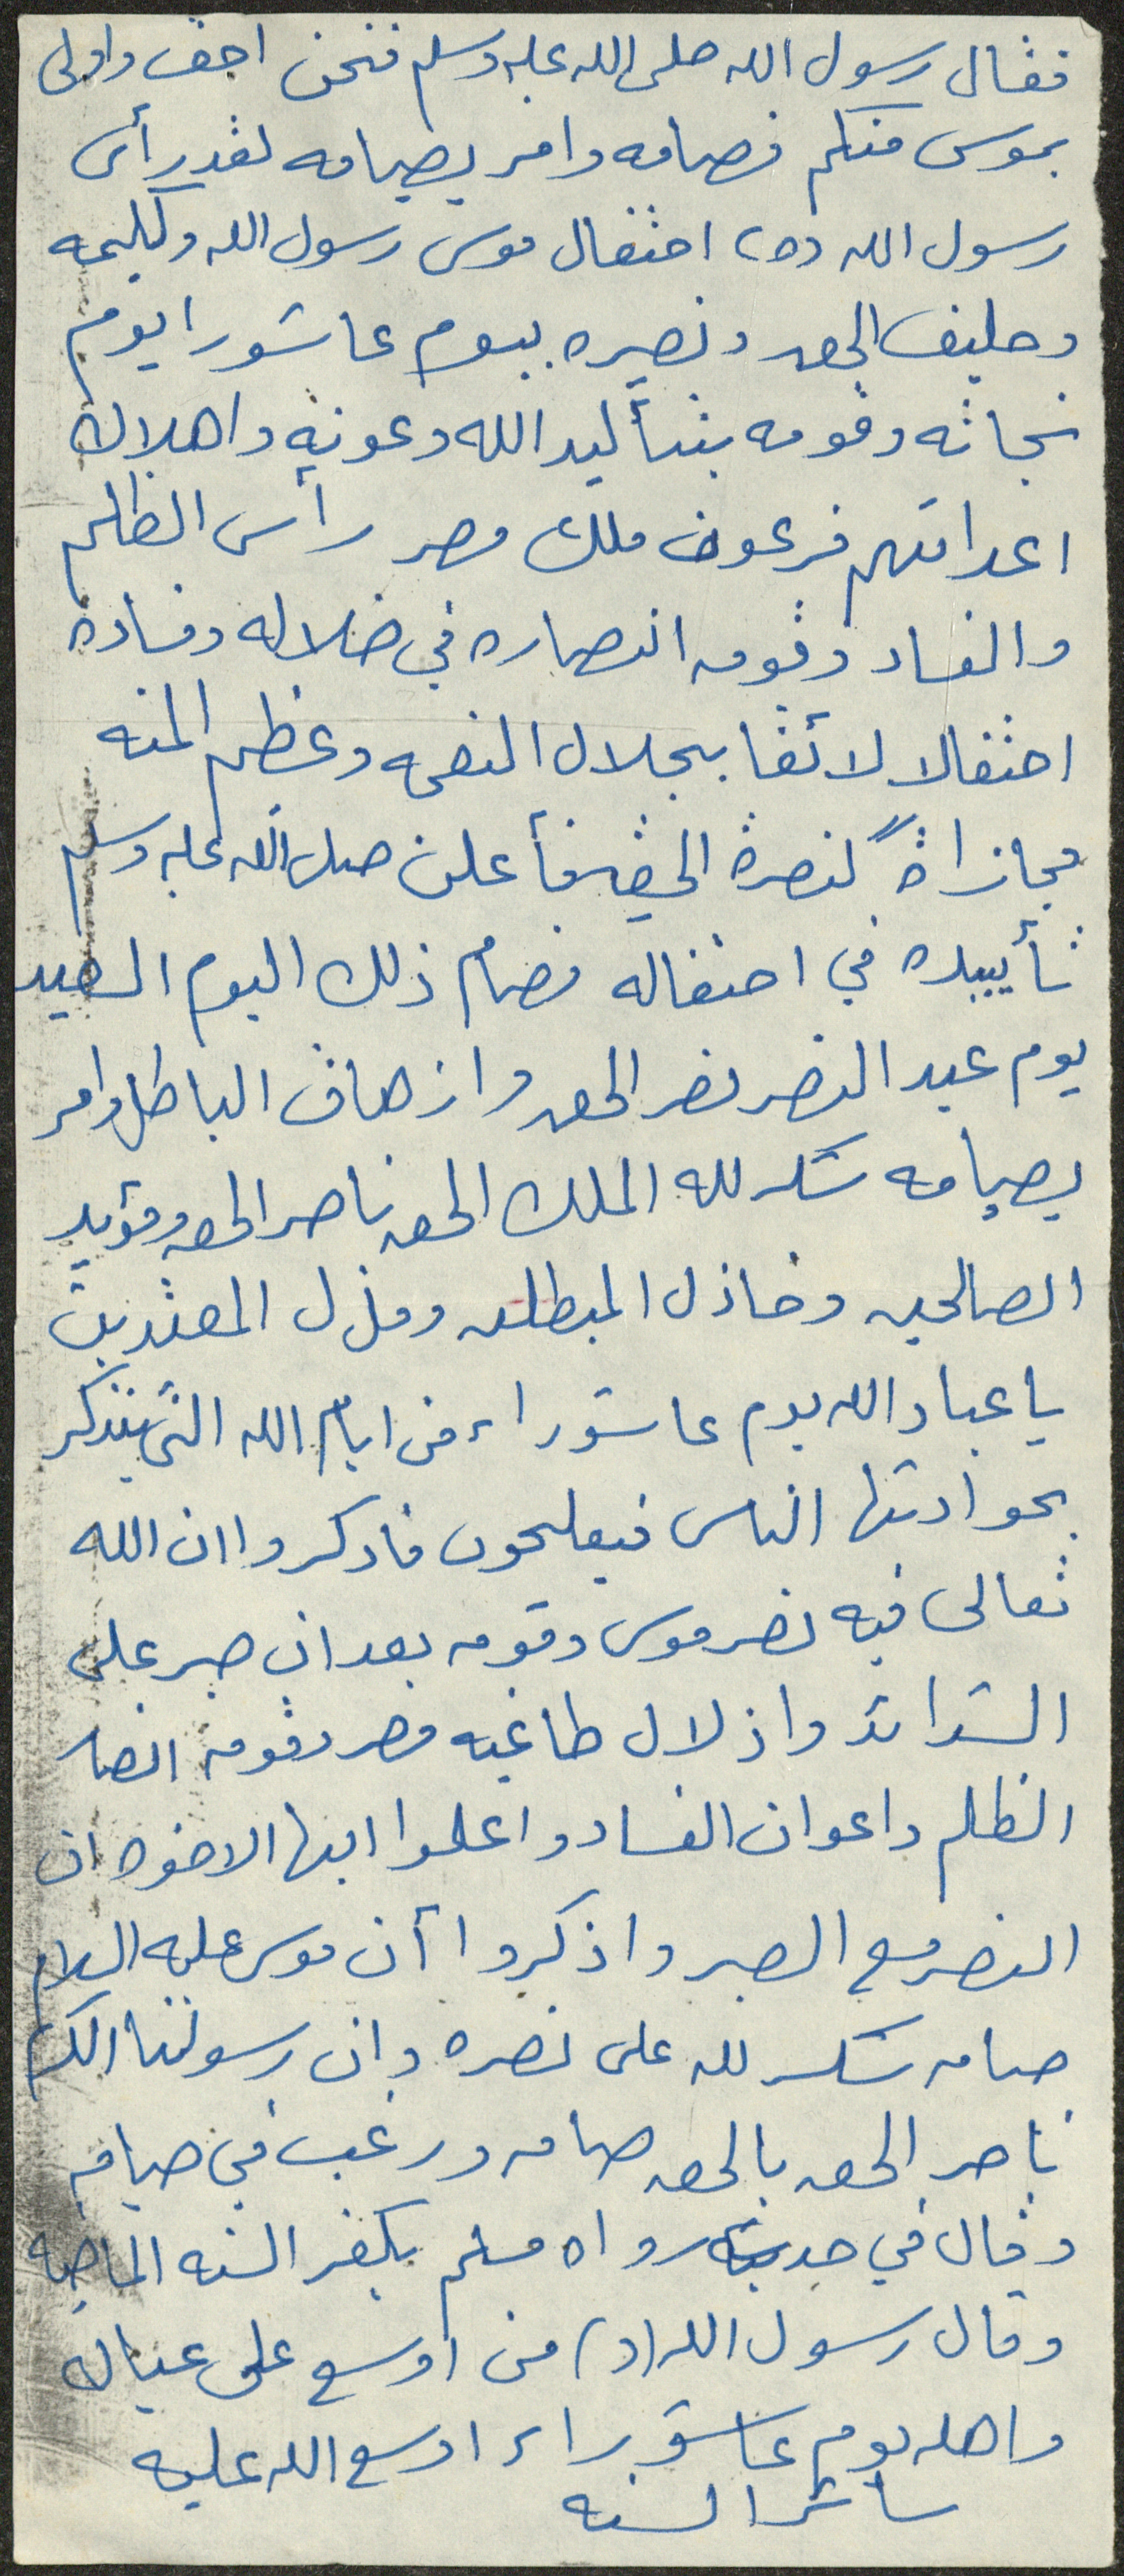 فقال رسول الله صلى الله عليه وسلم فنحن احق واولى
بموسى منكم فصامه وامر بصيامه لقد رأى
رسول الله (ص) احتفال موسى رسول الله وكليمه
وحليف الحق ونصيره بيوم عاشورا يوم
نجاته وقومه بتأليد الله وعونه واهلاك
اعدائهم فرعون ملك مصر رأس الظلم
والفساد وقومه انصاره في ضلاله وفساده
احتفالا لائقا بجلال النعمه وعظم المنه
مجازاةً لنصرة الحق فأعلن صلى الله عليه وسلم
تأييده في احتفاله فصام ذلك اليوم السعيد
يوم عيد النصر نصر الحق وازهاق الباطل وامر
بصيامه شكر لله الملك الحق ناصر الحق ومؤيد
الصالحين وخاذل المبطلين ومذل المعتدين
يا عباد الله يوم عاشوراء من ايام الله التي يتذكر
بحوادثها الناس فيفلحون فاذكروا ان الله
تعالى فيه نصر موسى وقومه بعد ان صبر على
الشدائد واذلال طاغيه مصر وقومه انصار
الظلم واعوان الفساد واعلموا ايها الاخوه ان
النصر مع الصبر واذكروا أن موسى عليه السلام
صامه شكر لله على نصره وان رسولنا الكريم
ناصر الحق بالحق صامه ورغب في صيامه
وقال في حديث رواه مسلم يكفر السنه الماضيه
وقال رسول الله (ص) من اوسع على عياله
واهله يوم عاشوراء اوسع الله عليه
سائر السنه